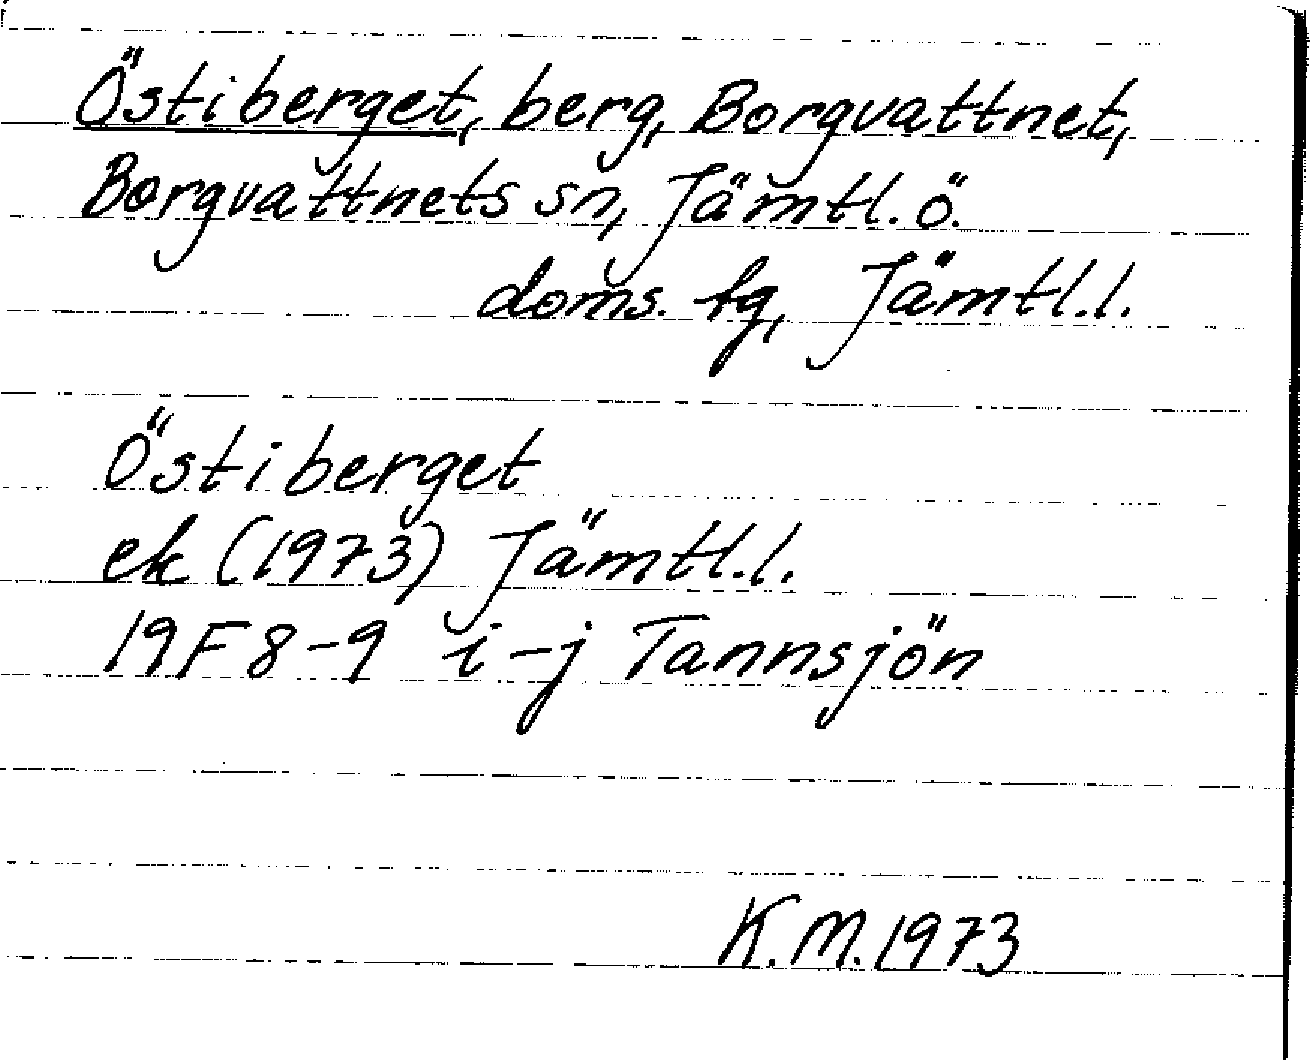 Östiberget, berg, Borgvattnet,
Borgvattnets sn, Jämtl. ö.
doms. tg, Jämtl.l.
Östiberget
ek (1973) Jämtl.l.
19F 8-9 i-j Tannsjön
K.M. 1973